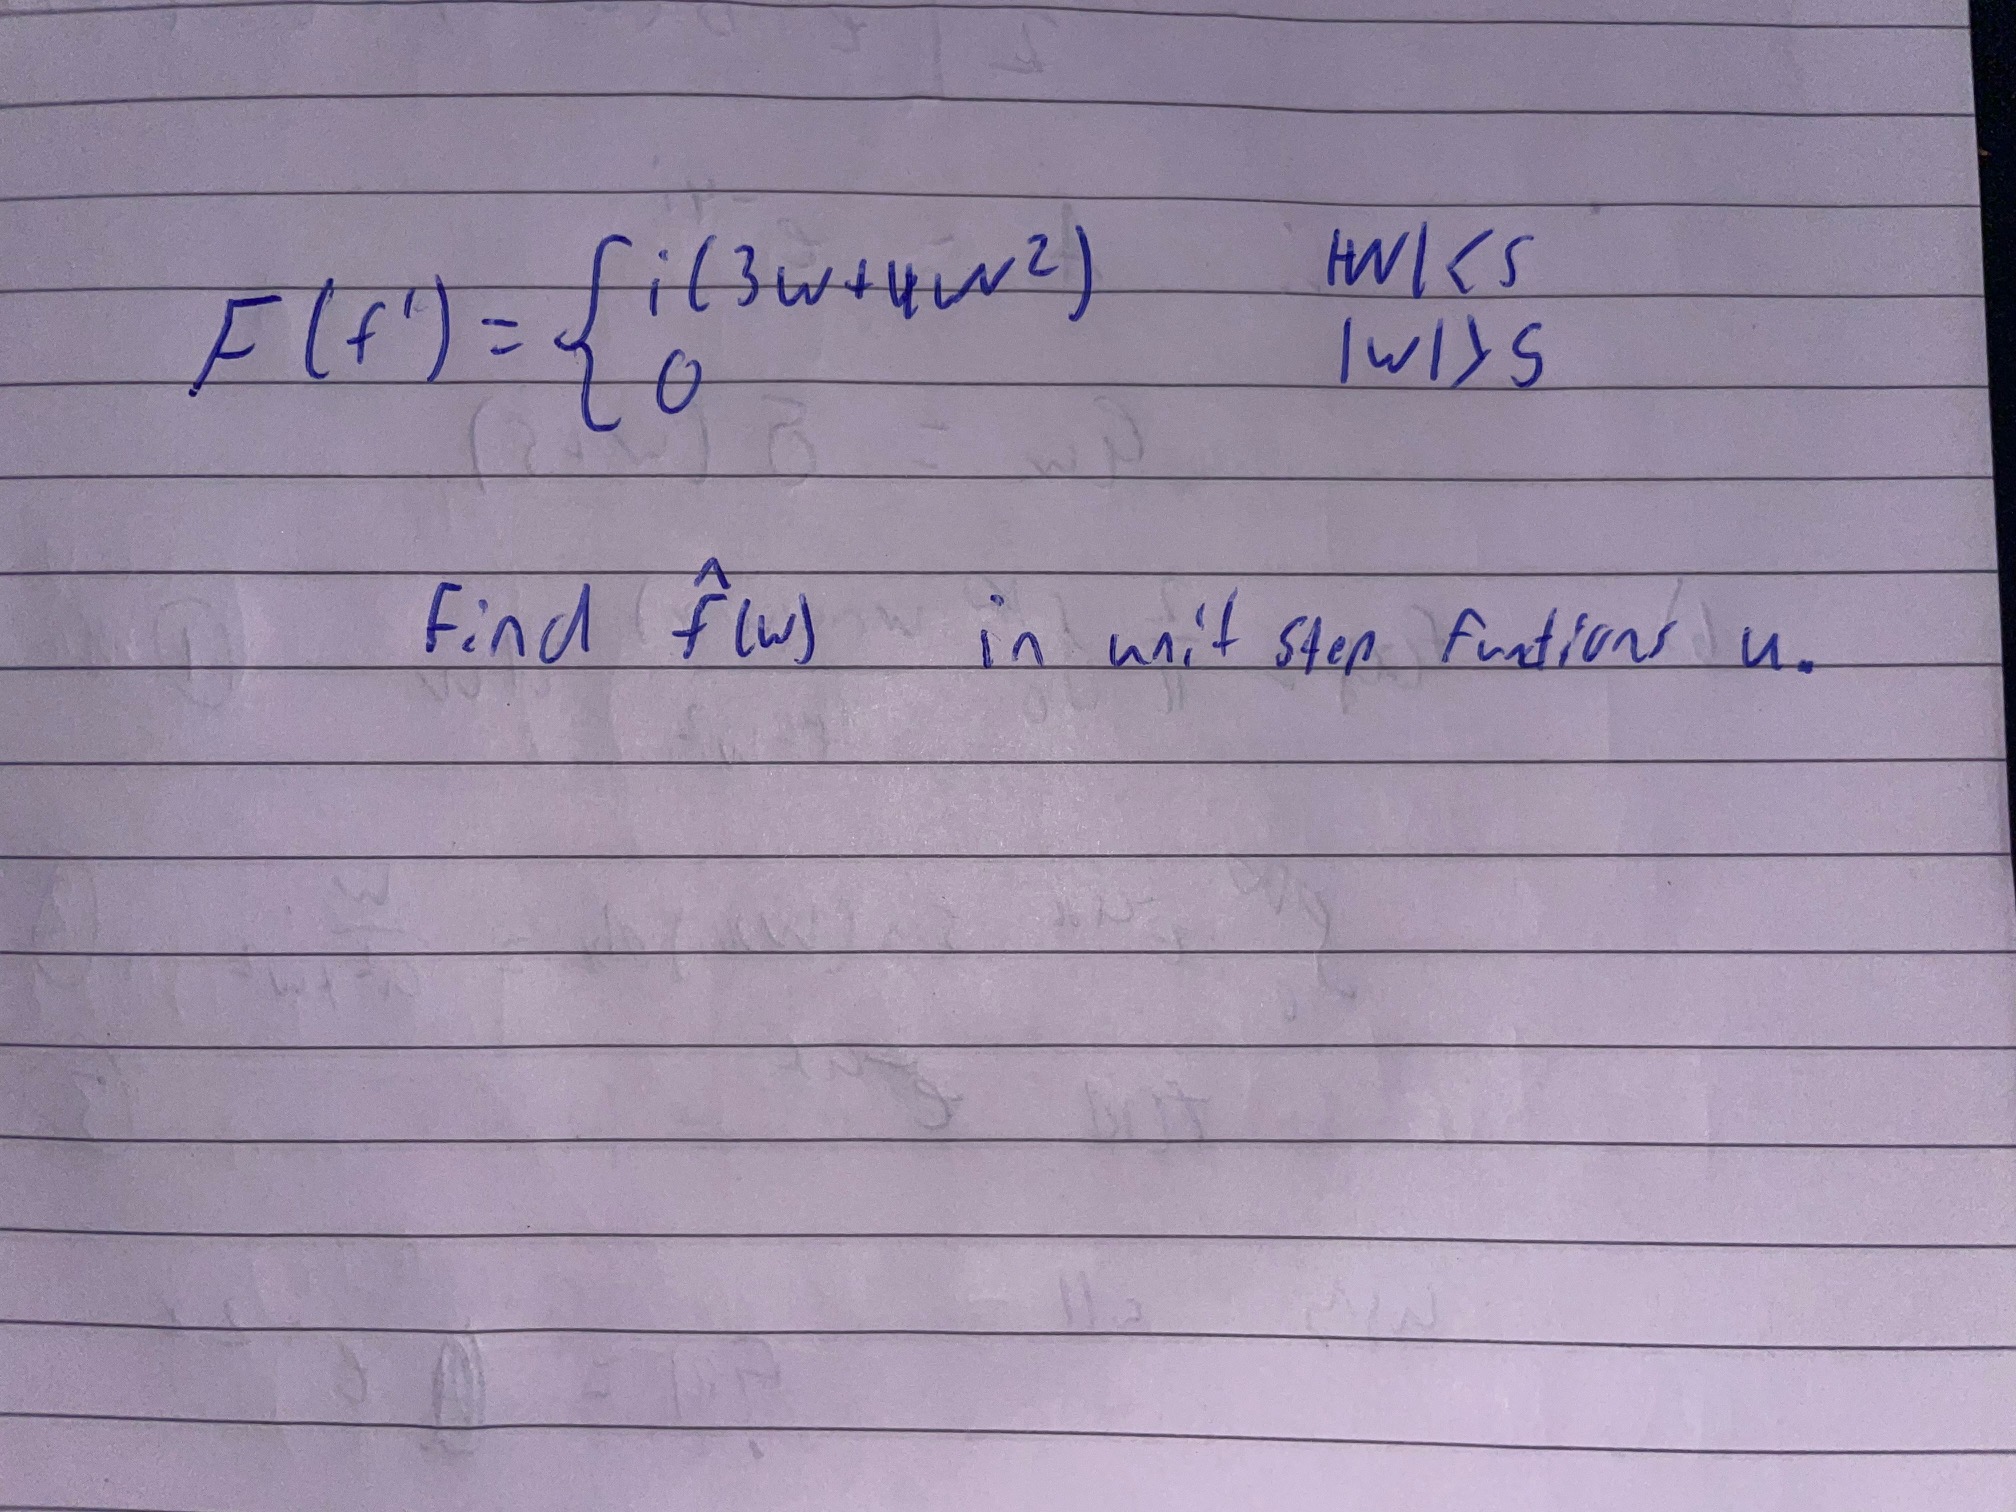 F(f') = { i(3w+4w²) |w|<5
0 |w|>5
Find f̂(w) in unit step funtions u.